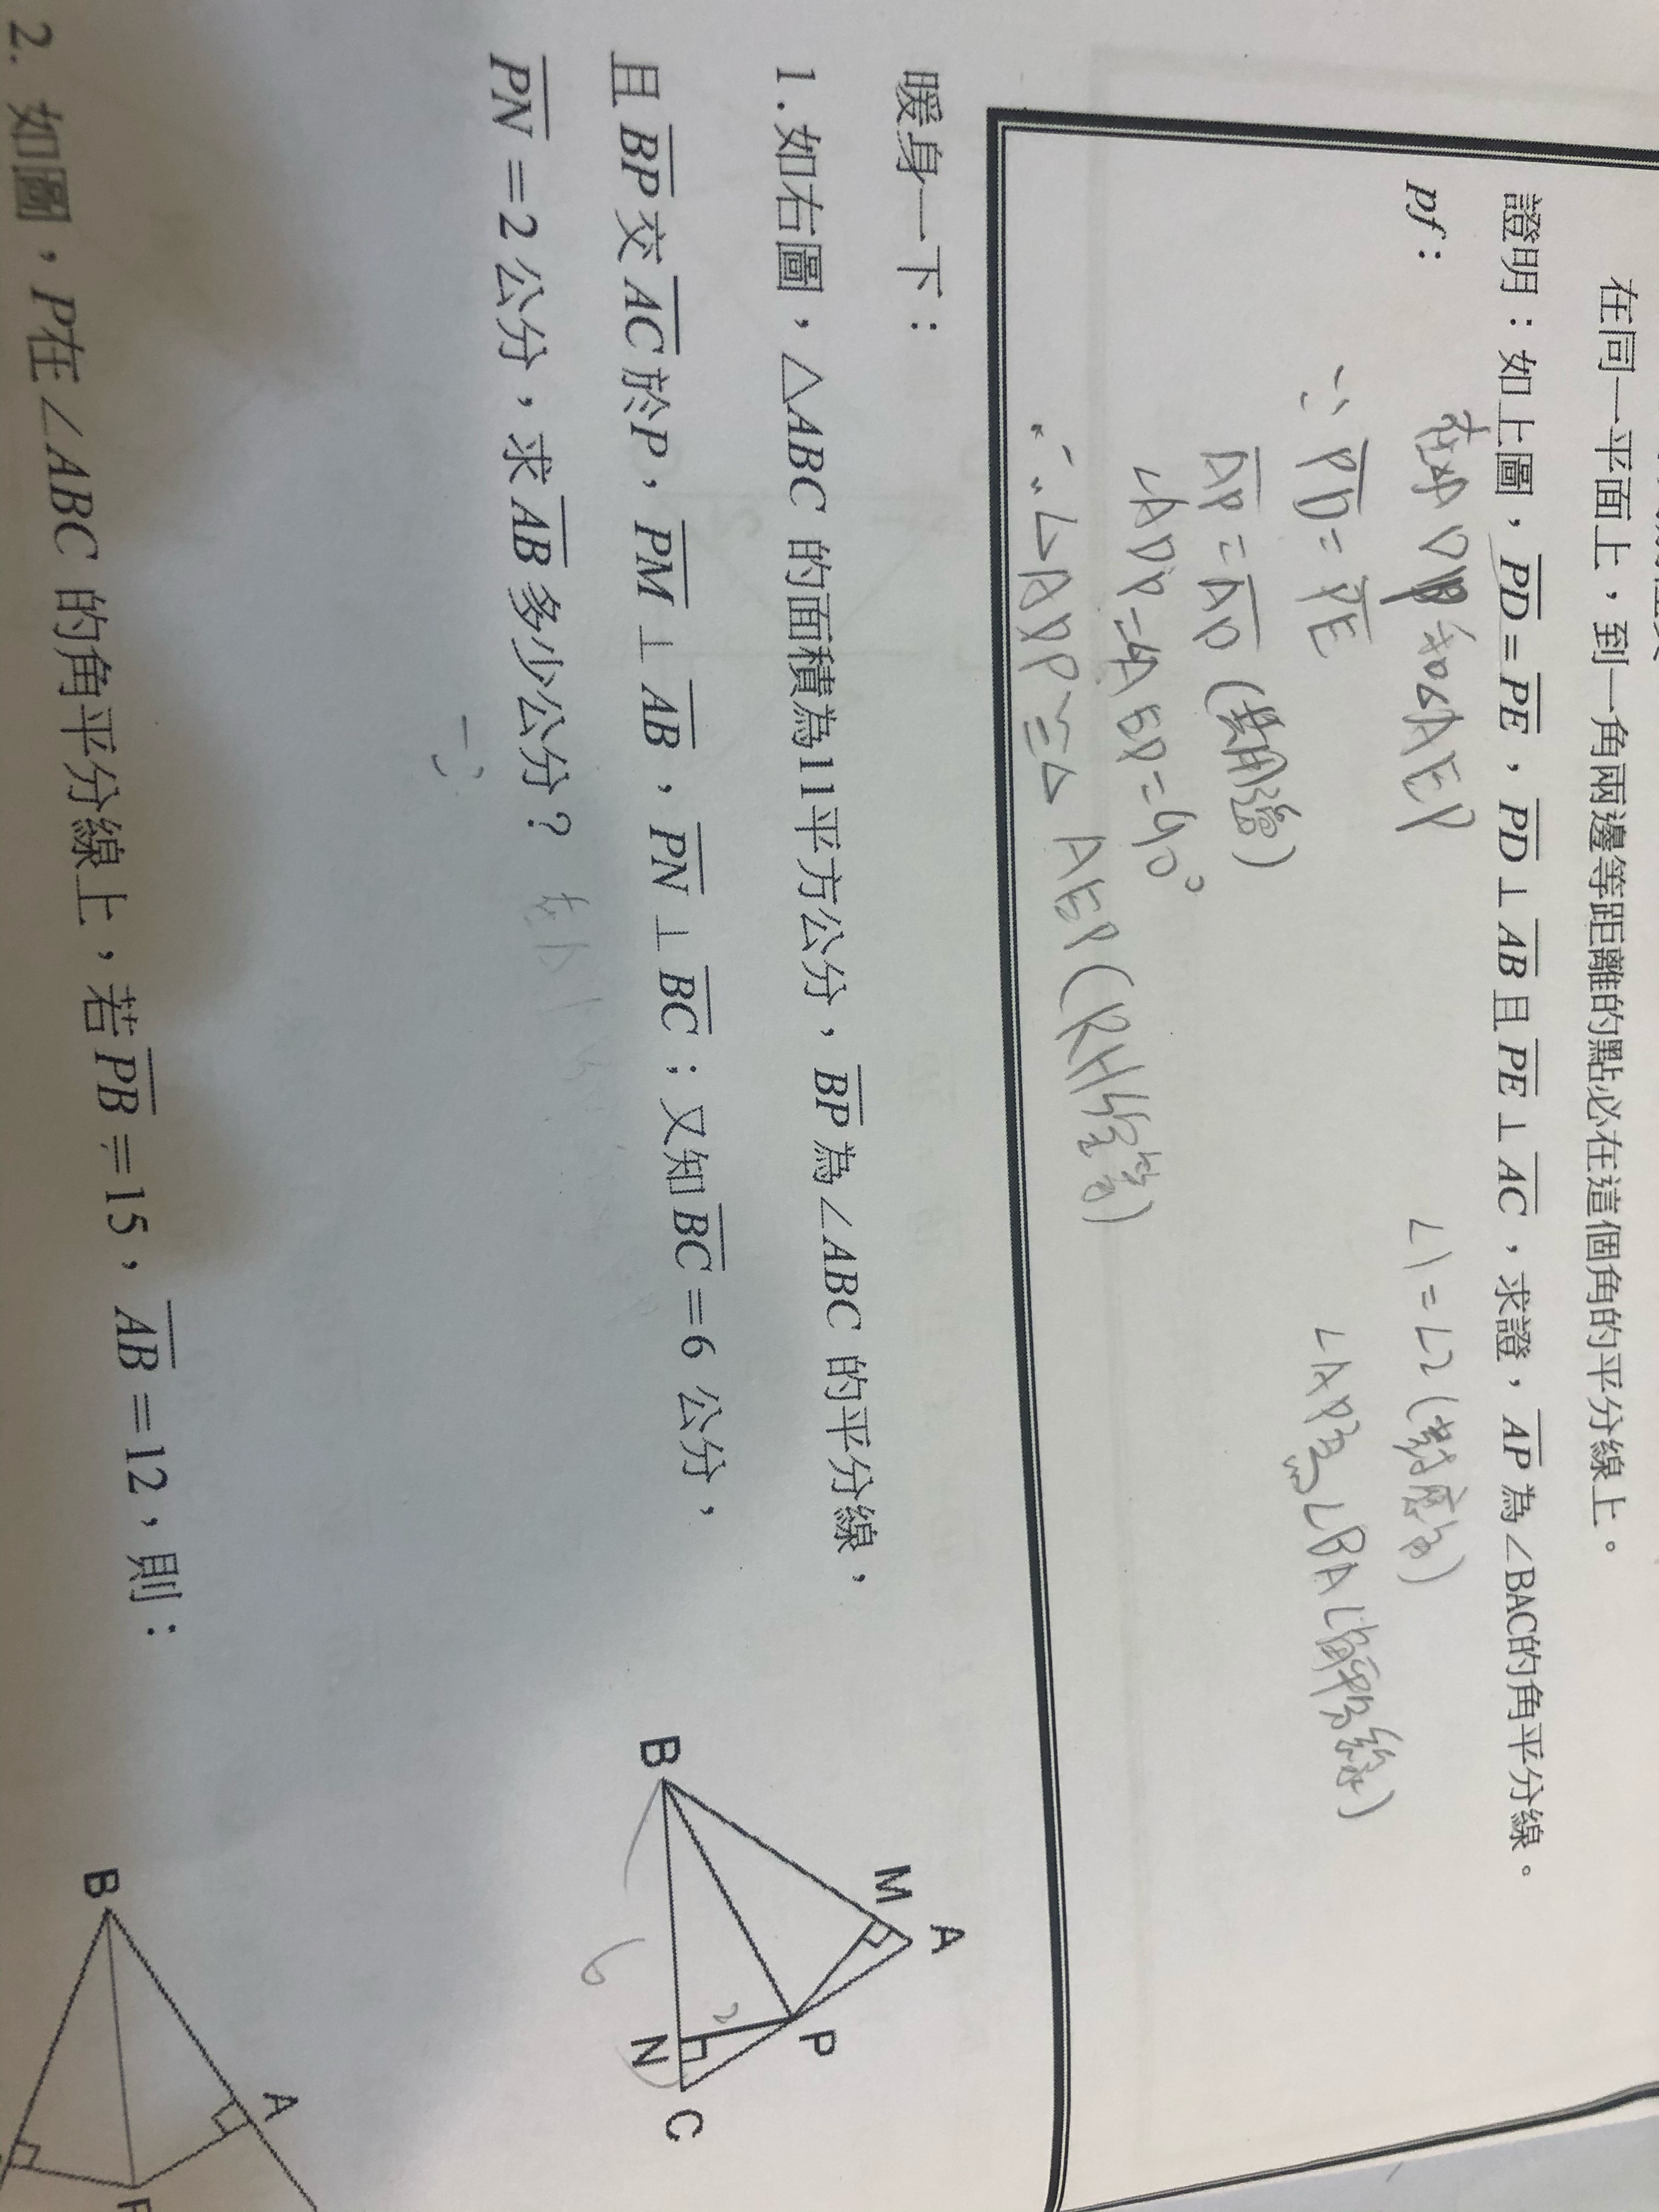 在同一平面上，到一角兩邊等距離的點必在這個角的平分線上。
證明：如上圖，PD=PE，PD⊥AB且PE⊥AC，求證，AP為∠BAC的角平分線。
pf：
∠1=∠2(對應角)
∵ PD=PE
∠AP為∠BAC角平分線)
AP=AP(共用邊)
∠ADP=∠AEP=90°
∴△ADP≅△AEP(RHS全等)
暖身一下：
1.如右圖，△ABC的面積為11平方公分，BP為∠ABC的平分線，
且BP交AC於P，PM⊥AB，PN⊥BC；又知BC=6公分，
PN=2公分，求AB多少公分？
∵
A
M
P
B
N
C
6
2
2. 如圖，P在∠ABC的角平分線上，若PB=15，AB=12，則：
A
B